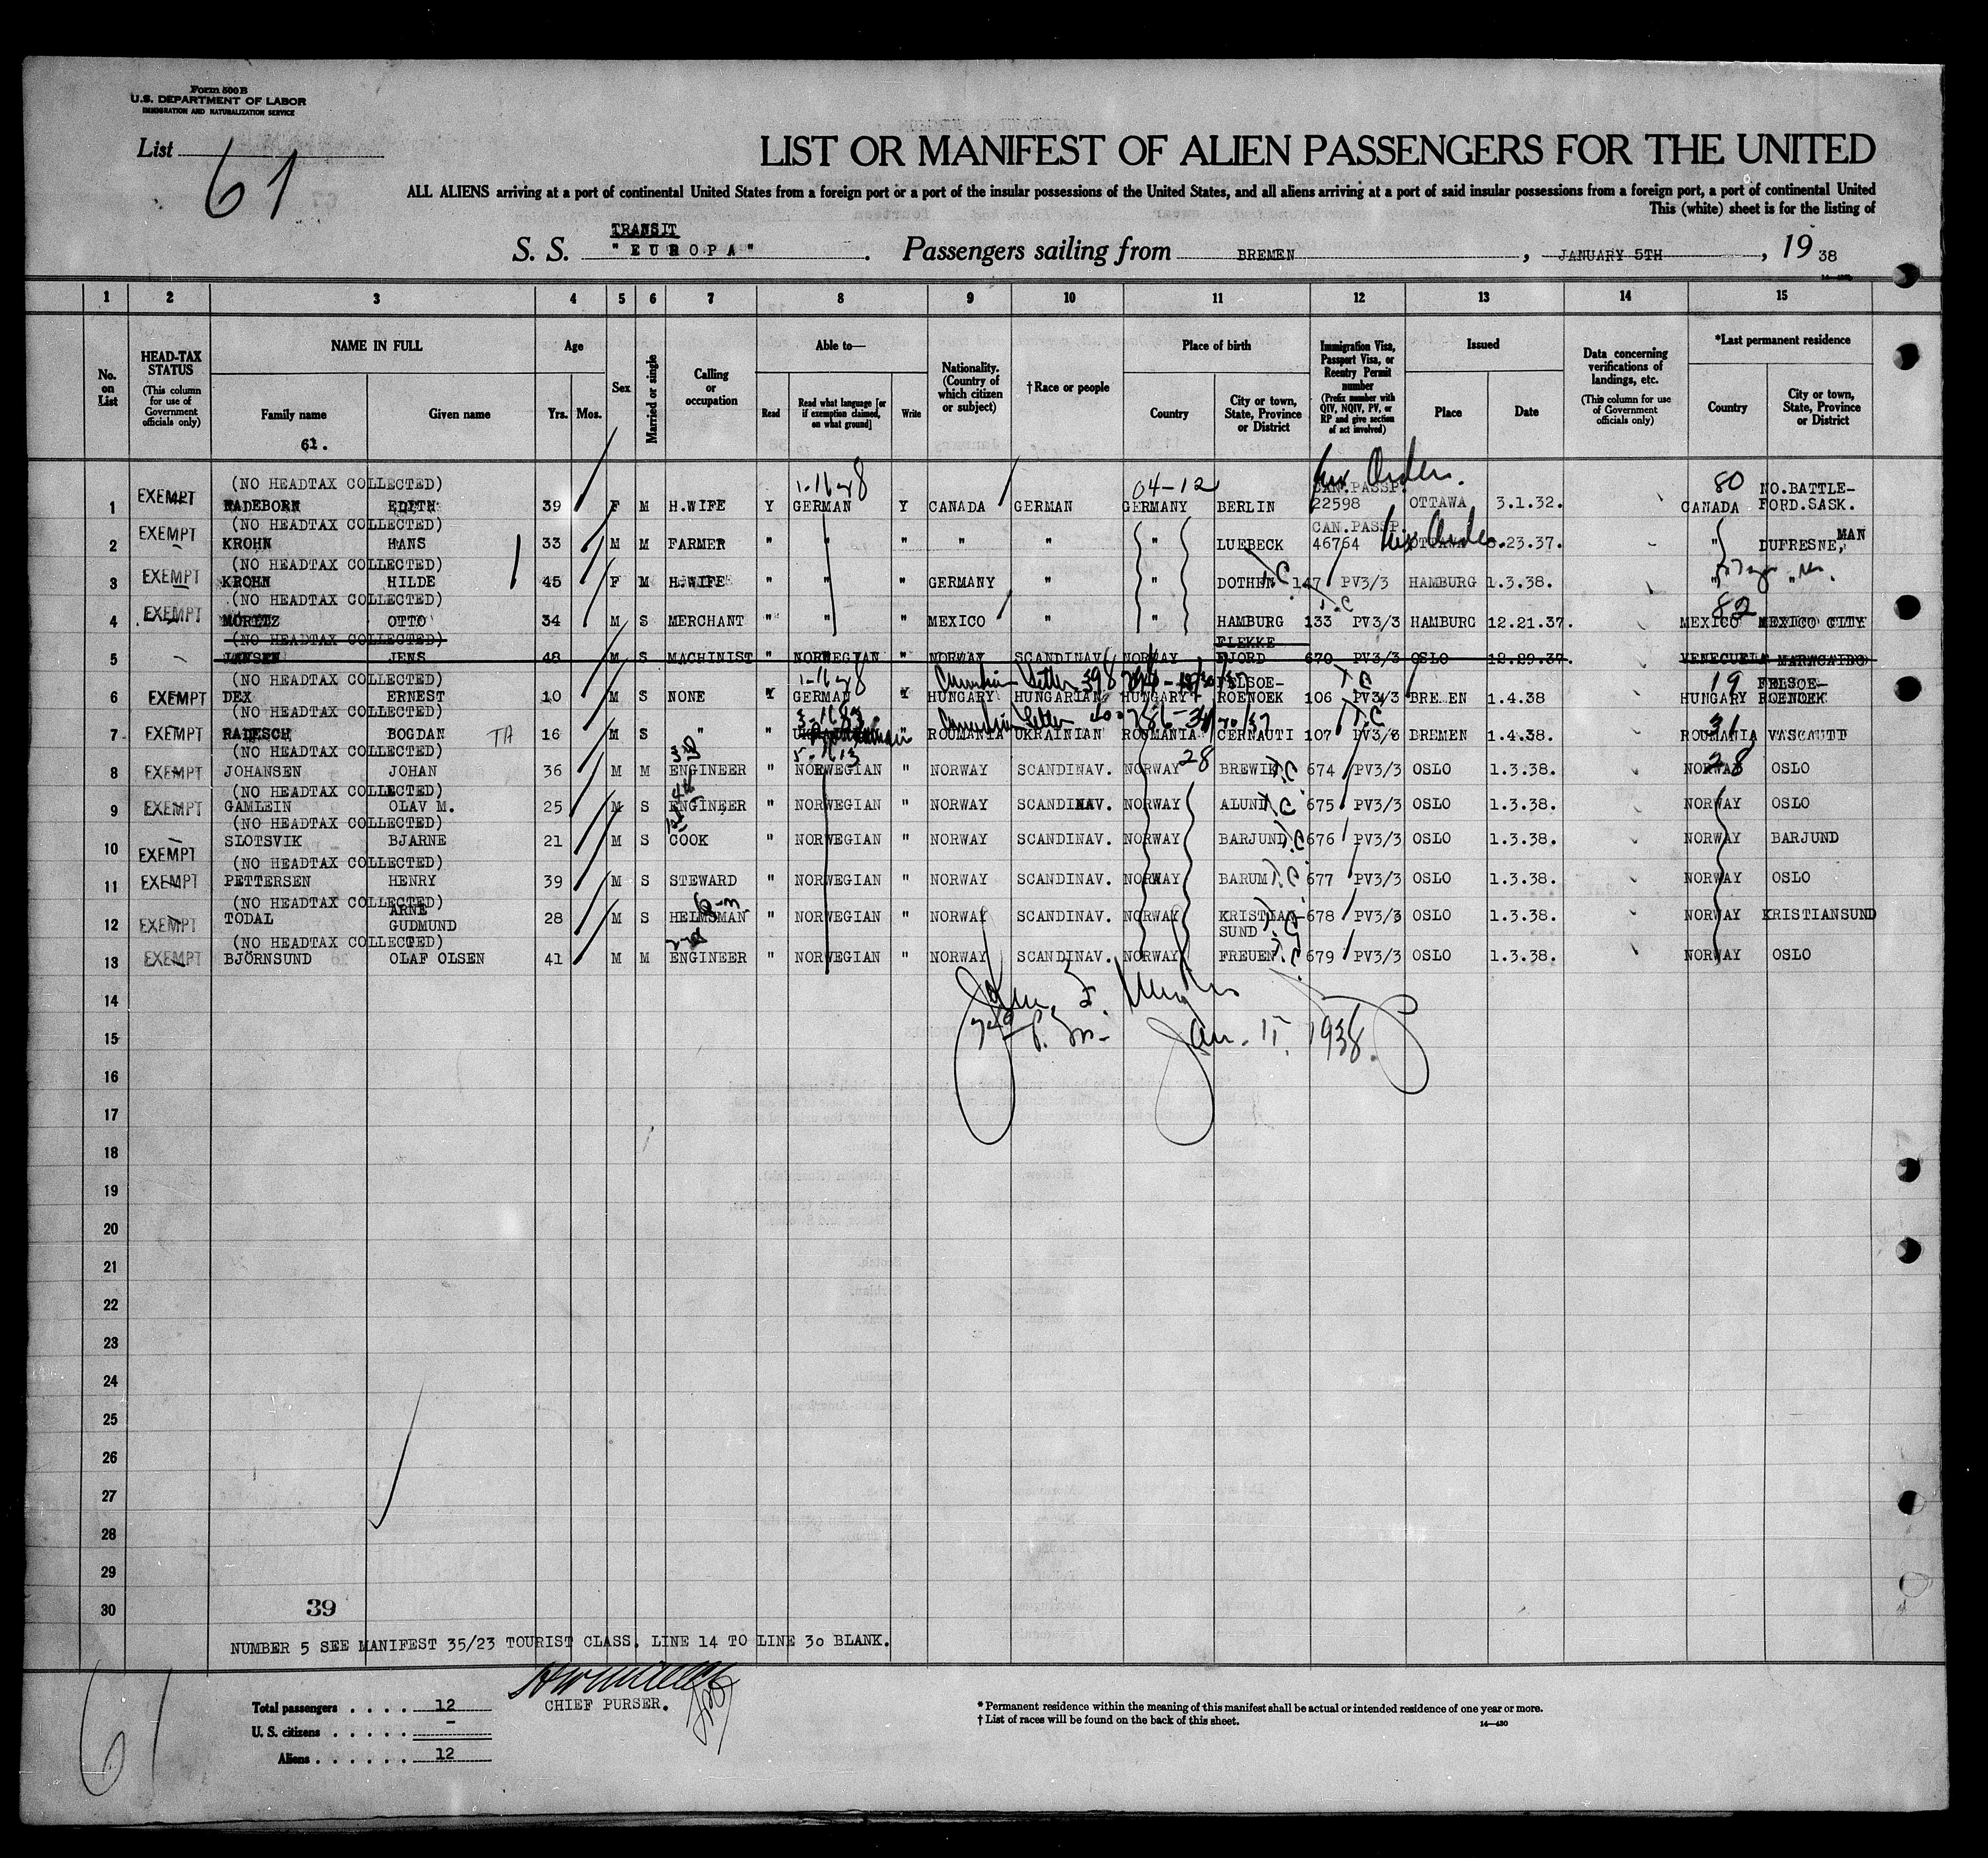 Form 500B
U.S. DEPARTMENT OF LABOR
IMMIGRATION AND NATURALIZATION SERVICE
List 61
LIST OR MANIFEST OF ALIEN PASSENGERS FOR THE UNITED
ALL ALIENS arriving at a port of continental United States from a foreign port or a port of the insular possessions of the United States, and all aliens arriving at a port of said insular possessions from a foreign port, a port of continental United
This (white) sheet is for the listing of
TRANSIT
S. S. "EUROPA". Passengers sailing from BREMEN, JANUARY 5TH, 1938
1 2 3 4 5 6 7 8 9 10 11 12 13 14 15
No. on List
HEAD-TAX STATUS (This column for use of Government officials only)
NAME IN FULL Family name Given name
61.
Age Yrs. Mos.
Sex
Married or single
Calling or occupation
Able to— Read Read what language [or if exemption claimed, on what ground] Write
Nationality. (Country of which citizen or subject)
†Race or people
Place of birth Country City or town, State, Province or District
Immigration Visa, Passport Visa, or Reentry Permit number (Prefix number with QIV, NQIV, PV, or RP and give section of act involved)
Issued Place Date
Data concerning verifications of landings, etc. (This column for use of Government officials only)
*Last permanent residence Country City or town, State, Province or District
(NO HEADTAX COLLECTED) 04-12 CAN.PASSP. 80 NO.BATTLE-
1 EXEMPT RADEBORN EDITH 39 F M H.WIFE Y GERMAN Y CANADA GERMAN GERMANY BERLIN 22598 OTTAWA 3.1.32. CANADA FORD.SASK.
(NO HEADTAX COLLECTED) CAN.PASSP. MAN
2 EXEMPT KROHN HANS 33 M M FARMER " " " " " " LUEBECK 46764 OTTAWA 23.37. " DUFRESNE,
(NO HEADTAX COLLECTED)
3 EXEMPT KROHN HILDE 45 F M H.WIFE " " " GERMANY " " DOTHEN 147 PV3/3 HAMBURG 1.3.38. " "
(NO HEADTAX COLLECTED) T.C 82
4 EXEMPT MORITZ OTTO 34 M S MERCHANT " " " MEXICO " " HAMBURG 133 PV3/3 HAMBURG 12.21.37. MEXICO MEXICO CITY
(NO HEADTAX COLLECTED) FLEKKE
5 JANSEN JENS 48 M S MACHINIST " NORWEGIAN " NORWAY SCANDINAV. NORWAY FJORD 670 PV3/3 OSLO 12.29.37. VENECUELA MARACAIBO
(NO HEADTAX COLLECTED) FELSOE- T.C 19 FELSOE-
6 EXEMPT DEX ERNEST 10 M S NONE Y GERMAN Y HUNGARY HUNGARIAN HUNGARY ROENOEK 106 PV3/3 BREMEN 1.4.38 HUNGARY ROENOEK
(NO HEADTAX COLLECTED) T.C 31
7 EXEMPT RADESCH BOGDAN TA 16 M S " " " ROUMANIA UKRAINIAN ROUMANIA CERNAUTI 107 PV3/3 BREMEN 1.4.38. ROUMANIA VASCAUTI
(NO HEADTAX COLLECTED) 28 28
8 EXEMPT JOHANSEN JOHAN 36 M M ENGINEER " NORWEGIAN " NORWAY SCANDINAV. NORWAY BREWIK T.C 674 PV3/3 OSLO 1.3.38. NORWAY OSLO
(NO HEADTAX COLLECTED)
9 EXEMPT GAMLEIN OLAV M. 25 M S ENGINEER " NORWEGIAN " NORWAY SCANDINAV. NORWAY ALUND T.C 675 PV3/3 OSLO 1.3.38. NORWAY OSLO
(NO HEADTAX COLLECTED)
10 EXEMPT SLOTSVIK BJARNE 21 M S COOK " NORWEGIAN " NORWAY SCANDINAV. NORWAY BARJUND T.C 676 PV3/3 OSLO 1.3.38. NORWAY BARJUND
(NO HEADTAX COLLECTED)
11 EXEMPT PETTERSEN HENRY 39 M S STEWARD " NORWEGIAN " NORWAY SCANDINAV. NORWAY BARUM T.C 677 PV3/3 OSLO 1.3.38. NORWAY OSLO
(NO HEADTAX COLLECTED)
12 EXEMPT TODAL ARNE GUDMUND 28 M S HELMSMAN " NORWEGIAN " NORWAY SCANDINAV. NORWAY KRISTIAN-SUND T.C 678 PV3/3 OSLO 1.3.38. NORWAY KRISTIANSUND
(NO HEADTAX COLLECTED) 2nd
13 EXEMPT BJÖRNSUND OLAF OLSEN 41 M M ENGINEER " NORWEGIAN " NORWAY SCANDINAV. NORWAY FREUEN T.C 679 PV3/3 OSLO 1.3.38. NORWAY OSLO
14
15 P.M. Jan. 11, 1938.
16
17
18
19
20
21
22
23
24
25
26
27
28
29
30 39
NUMBER 5 SEE MANIFEST 35/23 TOURIST CLASS. LINE 14 TO LINE 30 BLANK.
61
Total passengers . . . . 12
U. S. citizens . . . . . –
Aliens . . . . . . 12
CHIEF PURSER.
* Permanent residence within the meaning of this manifest shall be actual or intended residence of one year or more.
† List of races will be found on the back of this sheet.
14—430